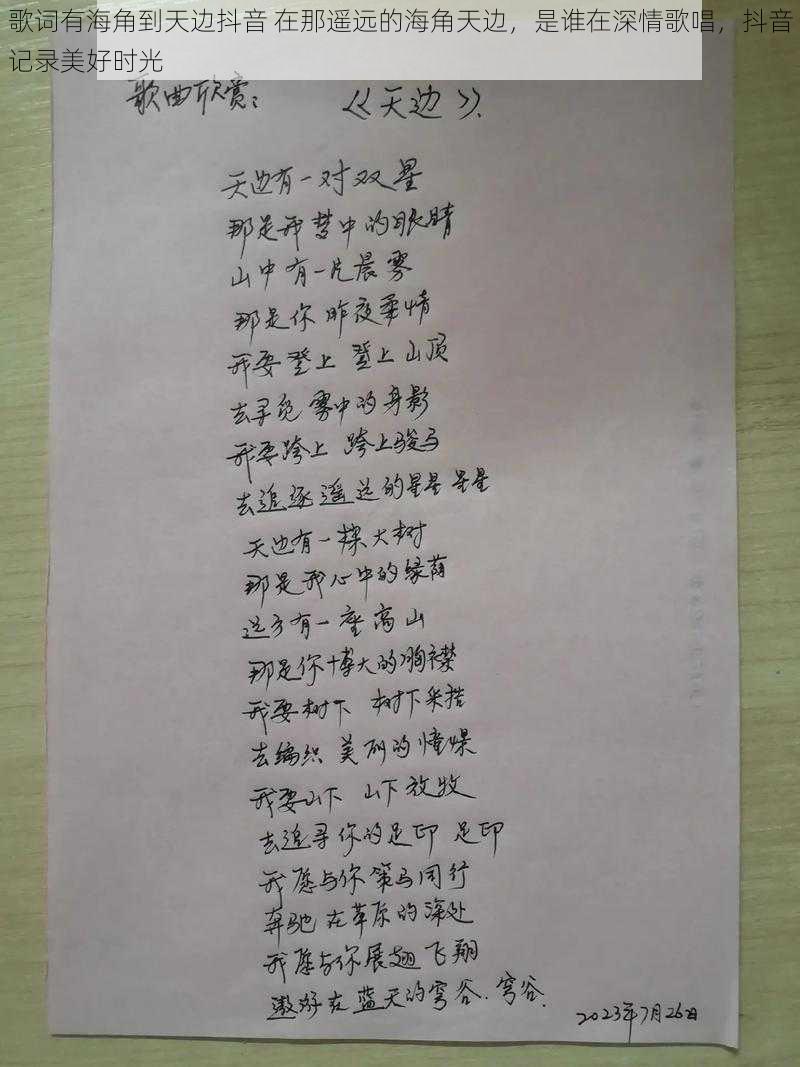 歌词有海角到天边抖音 在那遥远的海角天边，是谁在深情歌唱，抖音
记录美好时光
歌曲欣赏：
《天边》、
天边有一对双星
那是我梦中的眼睛
山中有一片晨雾
那是你昨夜柔情
我要登上 登上山顶
去寻觅雾中的身影
我要跨上 跨上骏马
去追逐遥远的星星 星星
天边有一棵大树
那是我心中的绿荫
远方有一座高山
那是你博大的胸襟
我要树下 树下采撘
去编织 美丽的憧憬
我要山下 山下放牧
去追寻你的足印 足印
我愿与你策马同行
奔驰在草原的深处
我愿与你展翅飞翔
遨游在蓝天的穹谷.穹谷.
2023年7月26日